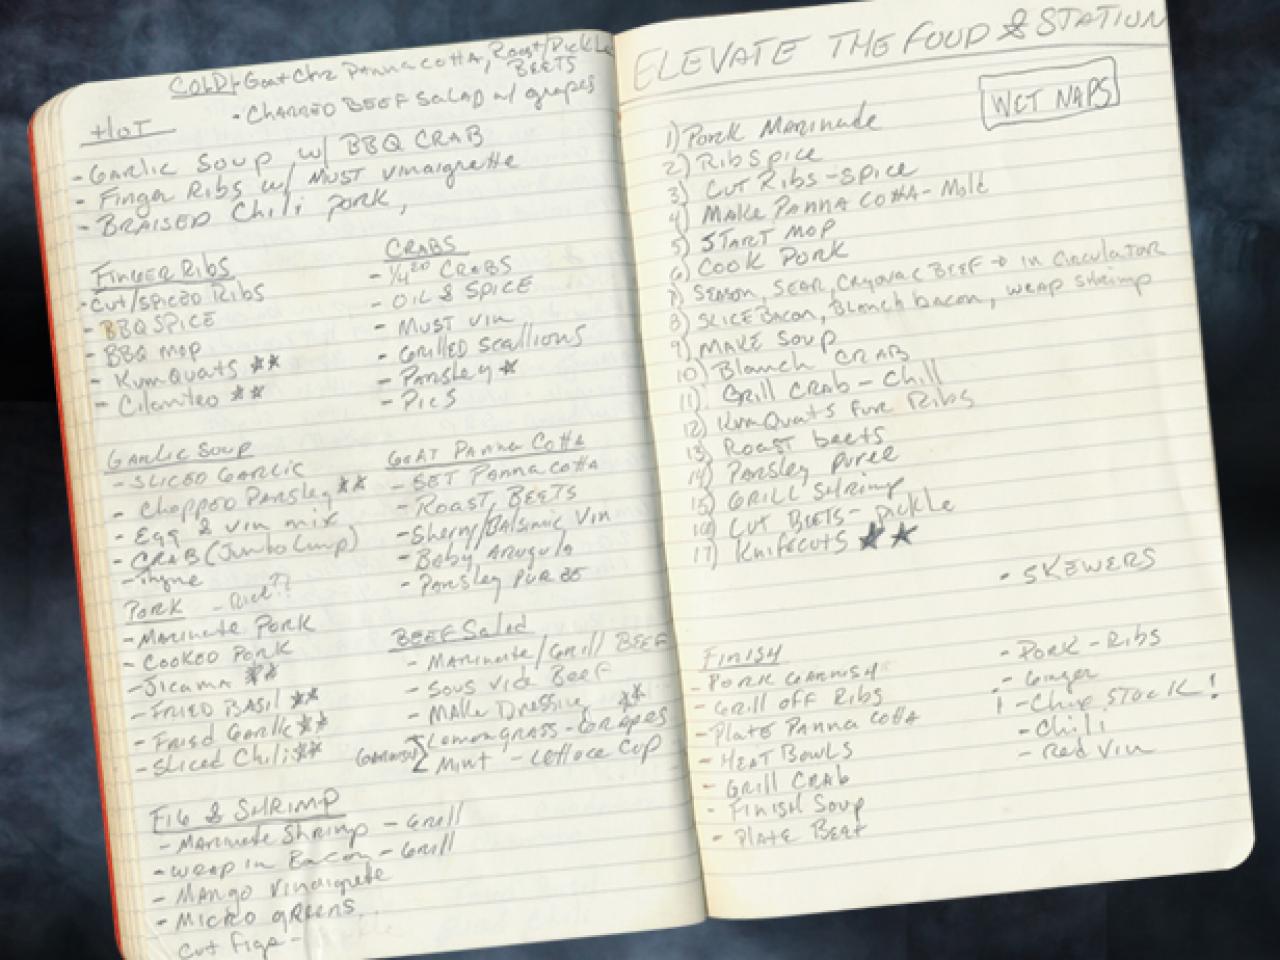 COLD/- Goat Chz Panna cotta, Roast/Pickle
BEETS
- CHARRED BEEF Salad w/ grapes
HOT
- Garlic Soup w/ BBQ CRAB
- Finger Ribs w/ MUST vinaigrette
- BRAISED Chili PORK,
FINGER RIBS
- Cut/SPICED Ribs
- BBQ SPICE
- BBQ MOP
- KumQuats ★★
- Cilantro ★★
CRABS
- CRABS
- OIL & SPICE
- MUST Vin
- GRILLED Scallions
- Parsley ★
- PICS
GARLIC SOUP
- SLICED GARLIC
- Chopped Parsley ★★
- Egg & vin mix
- CRAB (Jumbo Lump)
- Thyme
GOAT Panna Cotta
- SET Panna cotta
- ROAST BEETS
- Sherry/Balsamic Vin
- Baby Arugula
- Parsley PUREE
PORK - Rice??
- Marinate Pork
- COOKED PORK
- Jicama ★★
- FRIED BASIL ★★
- Fried Garlic ★★
- Sliced Chili ★★
BEEF Salad
- Marinate/Grill BEEF
- Sous Vide Beef
- MAKE Dressing ★★
(GARNISH) { Lemongrass - Grapes
Mint - Lettuce Cup
FIG & SHRIMP
- Marinate Shrimp - Grill
- wrap in Bacon - Grill
- Mango Vinaigrette
- Micro greens
Cut Figs -
ELEVATE THE FOOD & STATION
WET NAPS
1) Pork Marinade
2) Rib Spice
3) Cut Ribs - Spice
4) Make Panna Cotta - Mold
5) START MOP
6) COOK PORK
7) SEASON, SEAR, Cryovac BEEF → in Circulator
8) SLICE Bacon, Blanch bacon, wrap shrimp
9) MAKE SOUP
10) Blanch CRAB
11) Grill CRAB - Chill
12) KumQuats for Ribs
13) Roast beets
14) Parsley Puree
15) GRILL SHrimp
16) Cut BEETS - pickle
17) Knifecuts ★★
- SKEWERS
FINISH
- PORK GARNISH
- Grill off Ribs
- Plate Panna Cotta
- HEAT Bowls
- Grill CRAB
- Finish Soup
- Plate Beef
- Pork - Ribs
- Ginger
! - Chix STOCK!
- Chili
- Red Vin